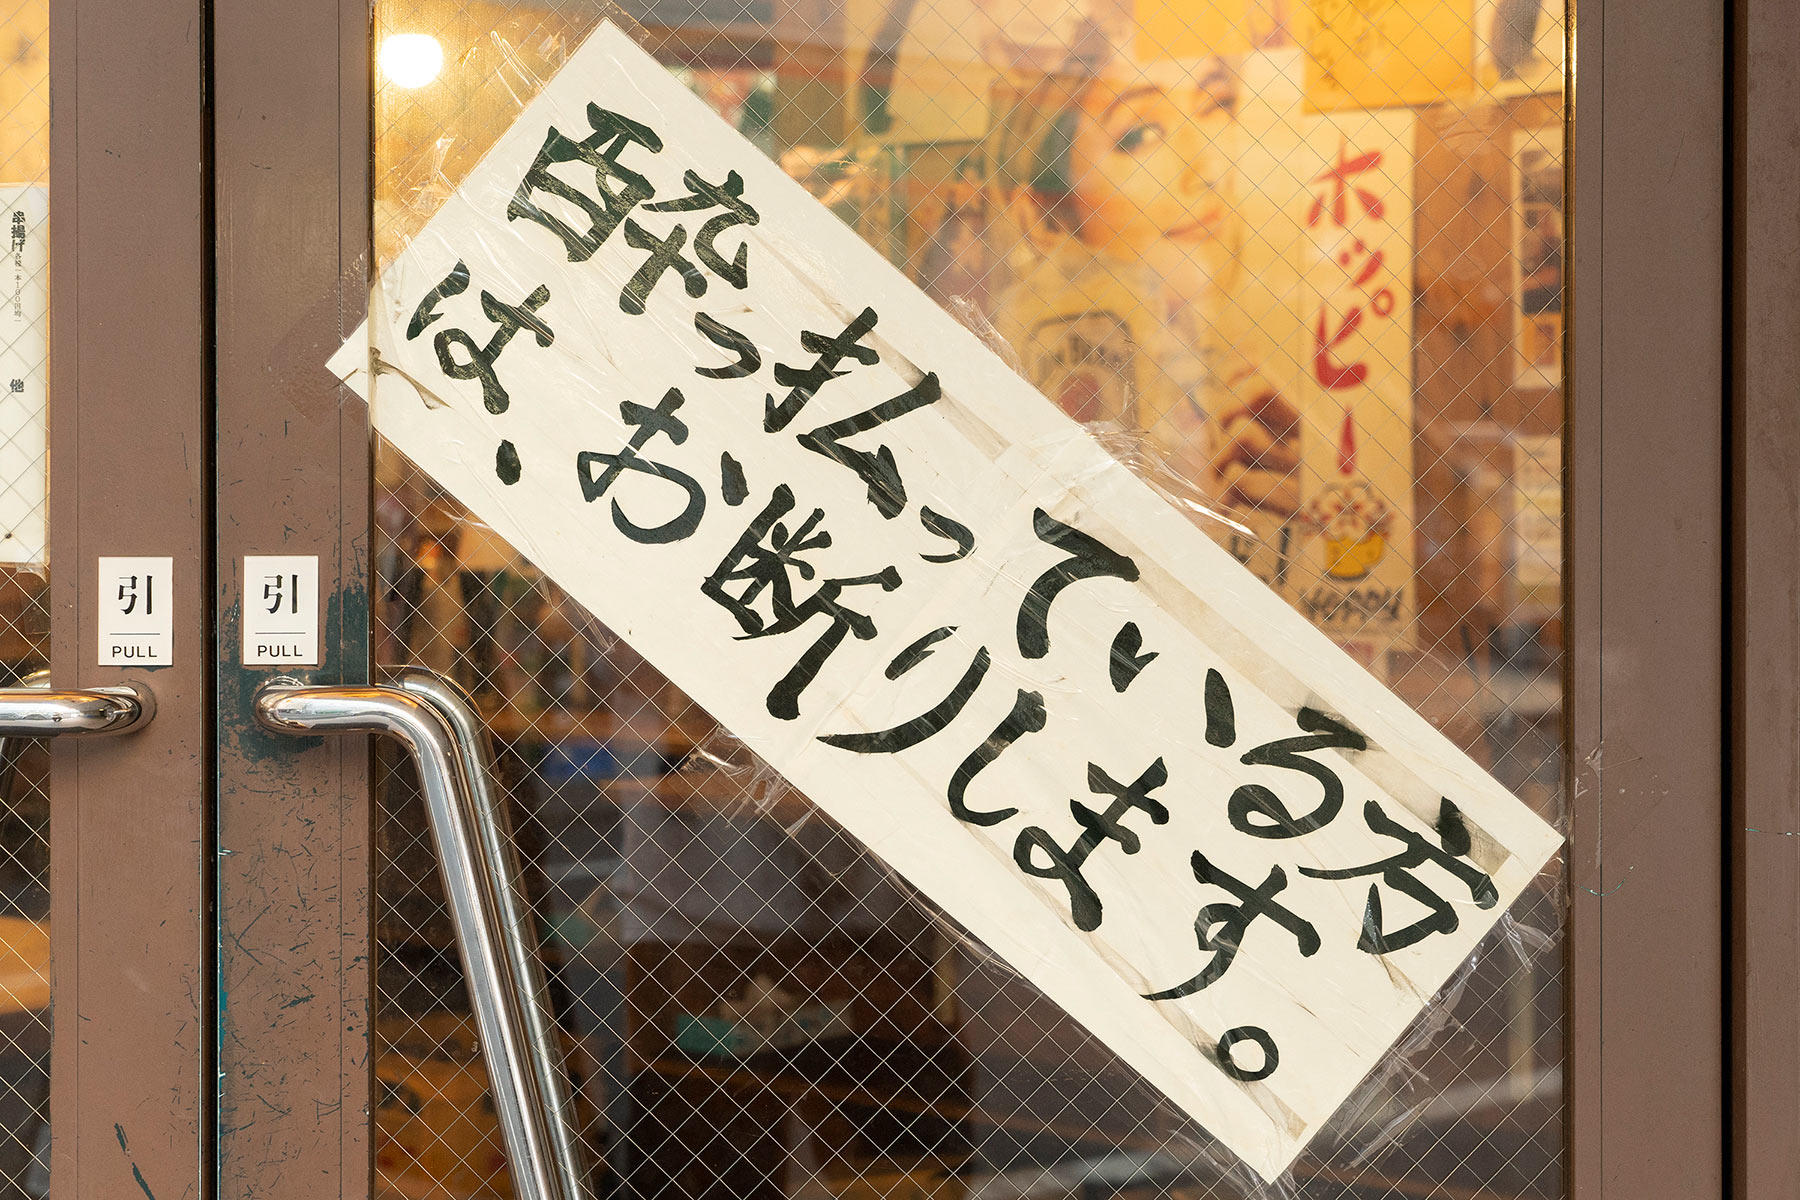 酔っ払っている方
は、お断りします。
引
PULL
引
PULL
ホッピー
HOPPY
串揚げ各種一本100円均一
他